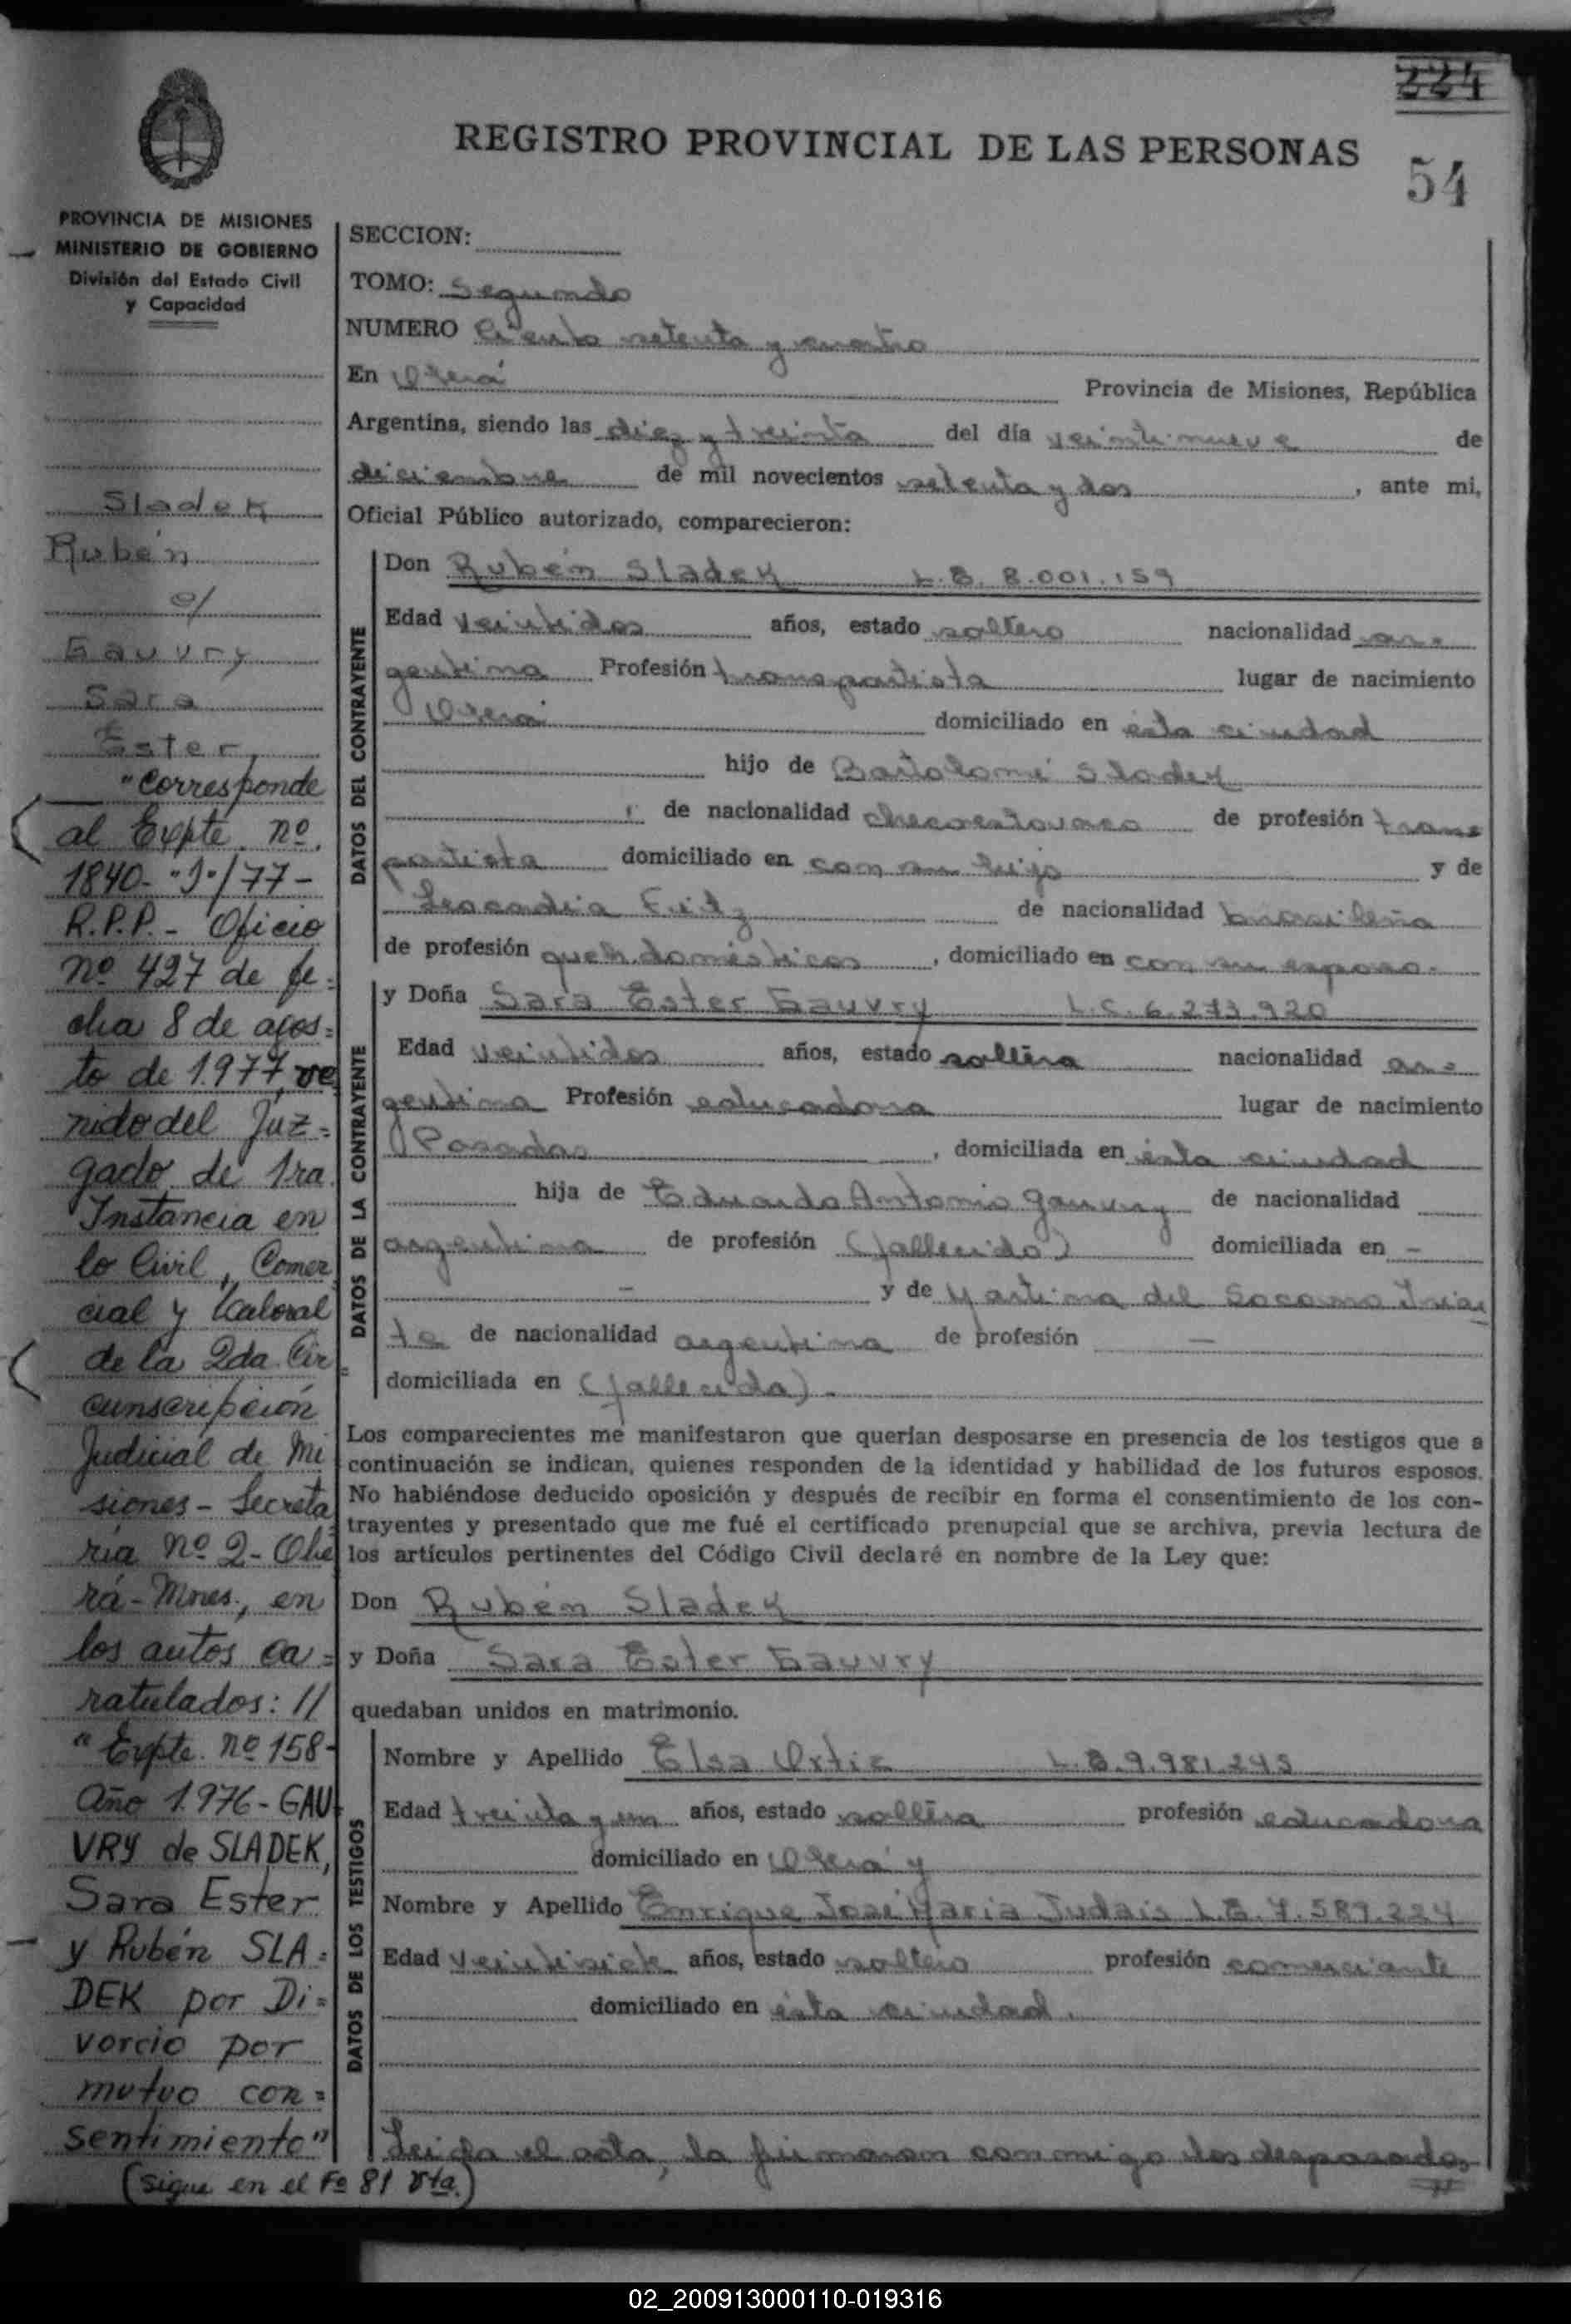 224
REGISTRO PROVINCIAL DE LAS PERSONAS
54
PROVINCIA DE MISIONES
MINISTERIO DE GOBIERNO
División del Estado Civil
y Capacidad
Sladek
Rubén
c/
Gauvry
Sara
Ester
"Corresponde
al Expte. nº
1840-"J"/77-
R.P.P.- Oficio
nº 427 de fe=
cha 8 de agos=
to de 1.977, ve
nido del Juz=
gado de 1ra.
Instancia en
lo Civil, Comer
cial y Laboral
de la 2da. Cir
cunscripción
Judicial de Mi
siones - Secreta
ría nº 2- Obe
rá- Mnes., en
los autos ca=
ratulados: //
"Expte. nº 158-
Año 1.976- GAU
VRY de SLADEK,
Sara Ester
y Rubén SLA=
DEK por Di=
vorcio por
mutuo con=
sentimiento"
(sigue en el Fº 81 vta.)
SECCION:
TOMO: Segundo
NUMERO Ciento setenta y cuatro
En Oberá Provincia de Misiones, República
Argentina, siendo las diez y treinta del día veintinueve de
diciembre de mil novecientos setenta y dos, ante mi,
Oficial Público autorizado, comparecieron:
DATOS DEL CONTRAYENTE
Don Rubén Sladek L.E. 8.001.159
Edad veintidos años, estado soltero nacionalidad ar=
gentina Profesión transportista lugar de nacimiento
Oberá domiciliado en ésta ciudad
hijo de Bartolomé Sladek
de nacionalidad checoeslovaco de profesión trans
portista domiciliado en con su hijo y de
Leocadia Fritz de nacionalidad brasileña
de profesión queh. domésticos, domiciliado en con su esposo.
DATOS DE LA CONTRAYENTE
y Doña Sara Ester Gauvry L.C. 6.273.920
Edad veintidos años, estado soltera nacionalidad ar=
gentina Profesión educadora lugar de nacimiento
Posadas, domiciliada en ésta ciudad
hija de Eduardo Antonio Gauvry de nacionalidad
argentina de profesión (fallecido) domiciliada en -
- y de Martina del Socorro Iriar
te de nacionalidad argentina de profesión -
domiciliada en (fallecida).
Los comparecientes me manifestaron que querían desposarse en presencia de los testigos que a
continuación se indican, quienes responden de la identidad y habilidad de los futuros esposos.
No habiéndose deducido oposición y después de recibir en forma el consentimiento de los con-
trayentes y presentado que me fué el certificado prenupcial que se archiva, previa lectura de
los artículos pertinentes del Código Civil declaré en nombre de la Ley que:
Don Rubén Sladek
y Doña Sara Ester Gauvry
quedaban unidos en matrimonio.
DATOS DE LOS TESTIGOS
Nombre y Apellido Elsa Ortiz L.E. 9.981.243
Edad treinta y un años, estado soltera profesión educadora
domiciliado en Oberá y
Nombre y Apellido Enrique José María Judais L.E. 7.587.224
Edad veintisiete años, estado soltero profesión comerciante
domiciliado en ésta ciudad.
Leida el acta, la firmaron conmigo los desposados
//
02_200913000110-019316